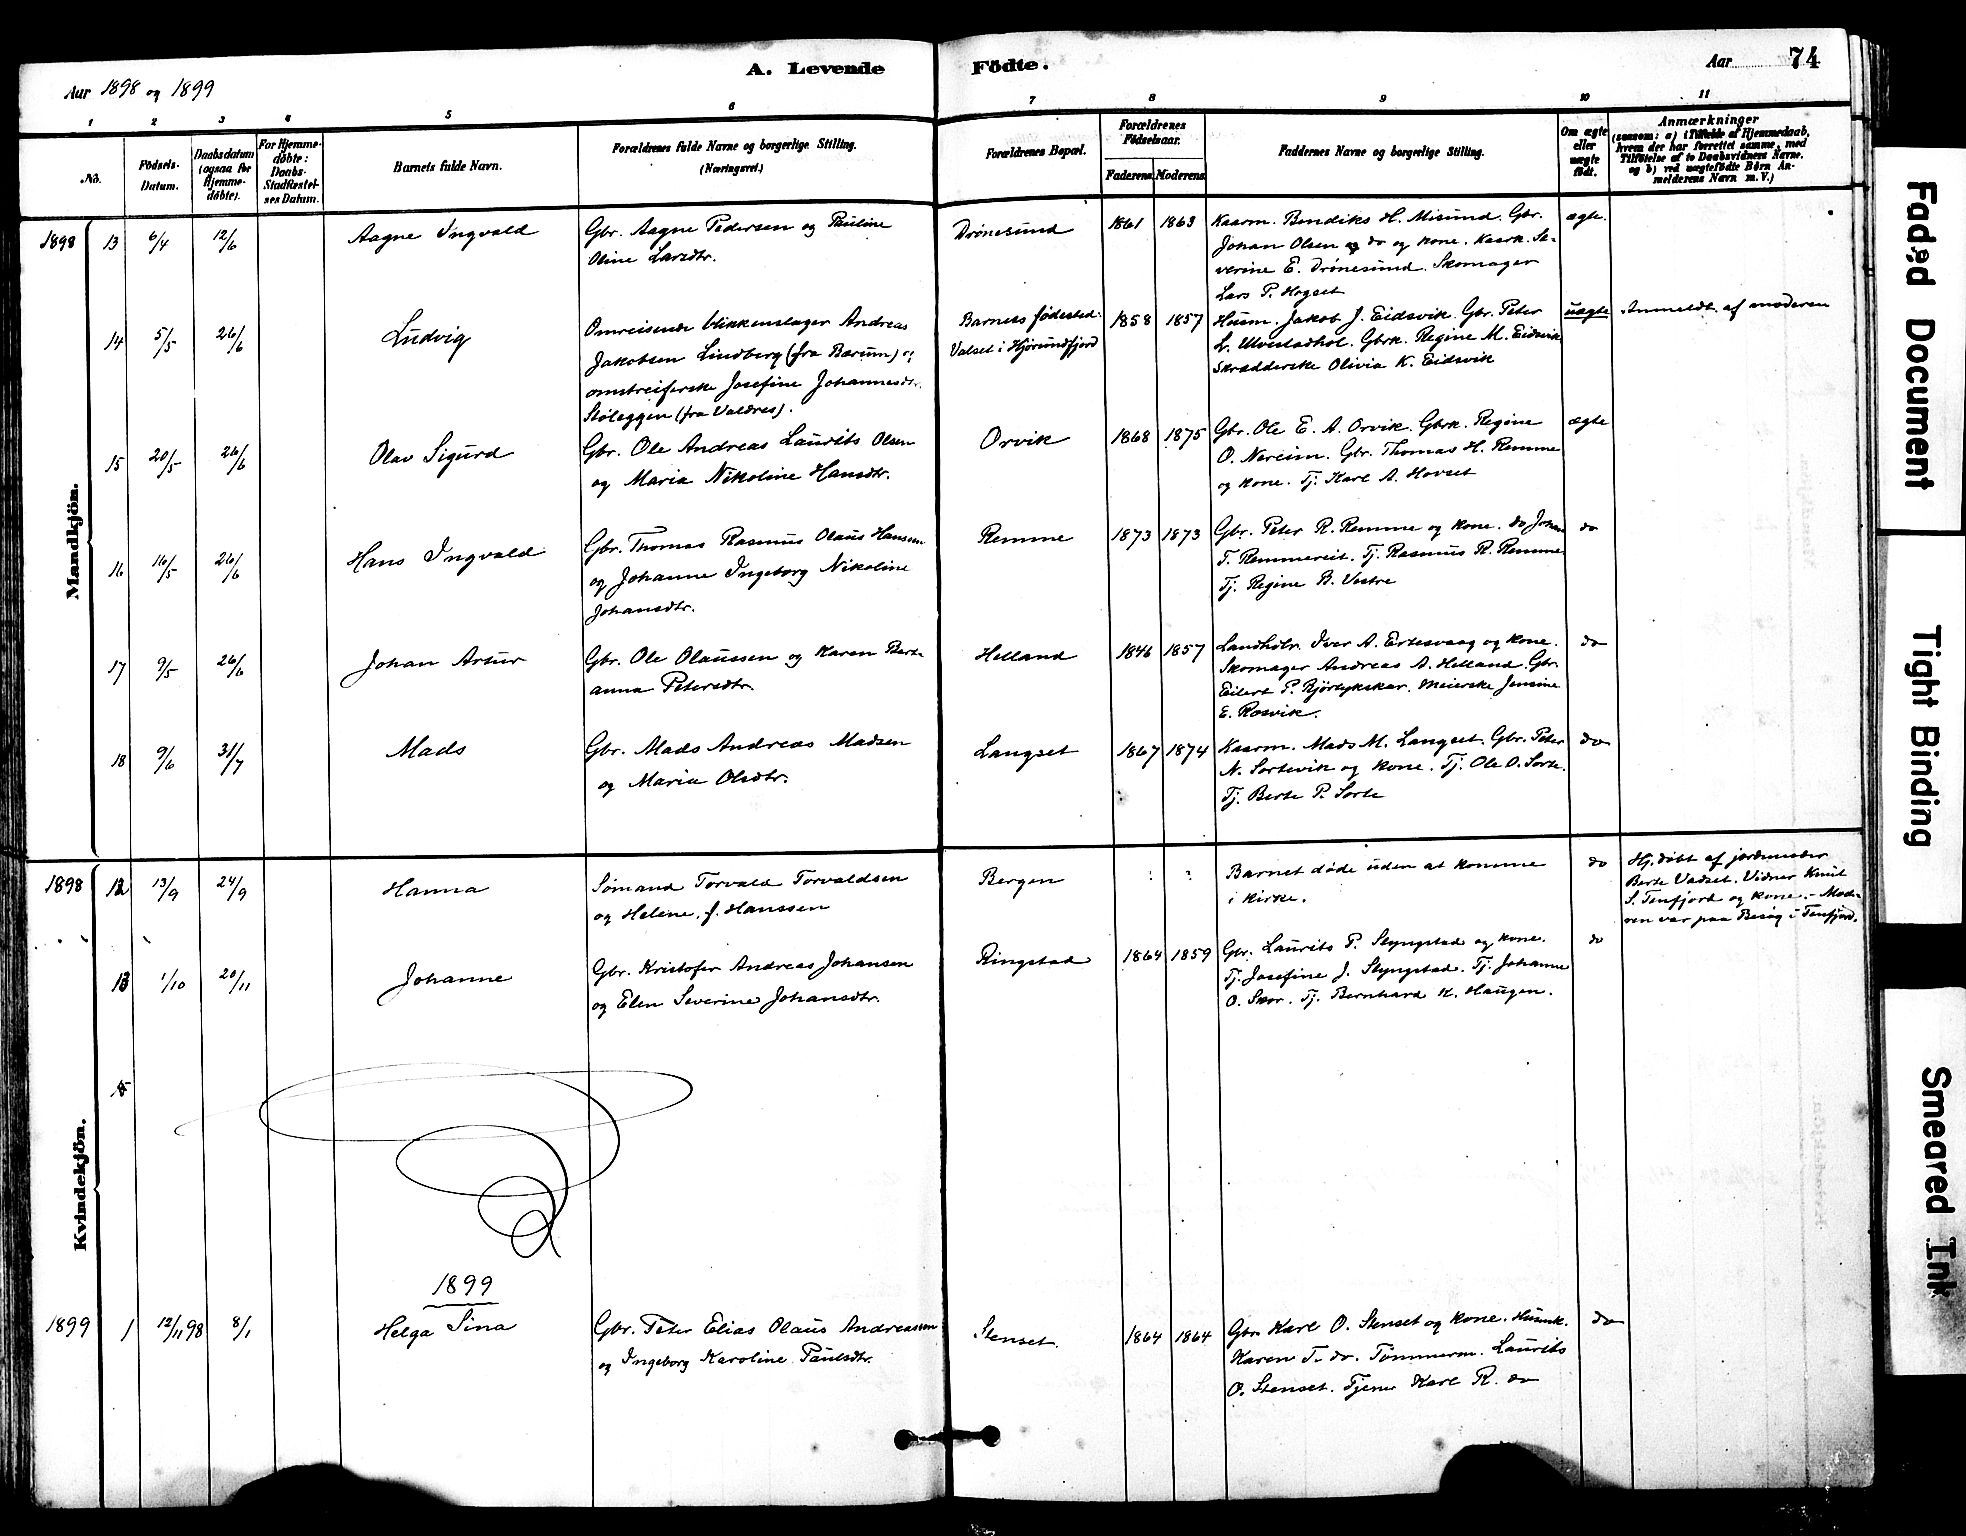 A. Levende Födte.
Aar 1898 og 1899
Aar 74
1 2 3 4 5 6 7 8 9 10 11
No.
Födsels-Datum.
Daabsdatum (ogsaa for Hjemmedöbte).
For Hjemmedöbte: Daabs-Stadfæstelses Datum.
Barnets fulde Navn.
Forældrenes fulde Navne og borgerlige Stilling. (Næringsvei.)
Forældrenes Bopæl.
Forældrenes Födselsaar.
Faderens Moderens
Faddernes Navne og borgerlige Stilling.
Om ægte eller uægte födt.
Anmærkninger
(saasom: a) i Tilfælde af Hjemmedaab,
hvem der har forrettet samme, med
Tilföielse af to Daabsvidners Navne.
og b) ved uægtefödte Börn An-
melderens Navn m. V.)
Mandkjön.
1898 13 6/4 12/6 Aagne Ingvald
Gbr. Aagne Pedersen og Pauline
Oline Larsdtr.
Drönesund 1861 1863
Kaarm. Bendiks H. Misund. Gbr.
Johan Olsen og do og kone. Kaark. Se-
verine E. Drönesund. Skomager
Lars P. Hogset
ægte.
14 5/5 26/6 Ludvig
Omreisende blikkenslager Andreas
Jakobsen Lindberg (fra Bærum) og
omstreiferske Josefine Johannesdtr.
Stöleggen (fra Valdres).
Barnets fødested:
Valset i Hjørundfjord
1858 1857
Husm. Jakob J. Eidsvik. Gbr. Peter
L. Ulvestadhol. Gbrk. Regine M. Eidsvik
Skrædderske Olivia K. Eidsvik
uægte Anmeldt af moderen
15 20/5 26/6 Olav Sigurd
Gbr. Ole Andreas Laurits Olsen
og Maria Nikoline Hansdtr.
Orvik 1868 1875
Gbr. Ole E. A. Orvik. Gbrk. Regine
O. Nereim. Gbr. Thomas H. Remme
og kone. Tj. Karl A. Hovset
ægte
16 16/5 26/6 Hans Ingvald
Gbr. Thomas Rasmus Olaus Hansen
og Johanne Ingeborg Nikoline
Johansdtr.
Remme 1873 1873
Gbr. Peter R. Remme og kone. do Johan
T. Remmereit. Tj. Rasmus R. Remme
Tj. Regine B. Vestre
do
17 9/5 26/6 Johan Artur
Gbr. Ole Olaussen og Karen Bert-
anna Petersdtr.
Helland 1846 1857
Landholr. Iver A. Ertesvaag og kone.
Skomager Andreas A. Helland. Gbr.
Eilert P. Björlykskar. Meierske Jensine
E. Rosvik.
do
18 9/6 31/7 Mads
Gbr. Mads Andreas Madsen
og Maria Olsdtr.
Langset 1867 1874
Kaarm. Mads M. Langset. Gbr. Peter
N. Sortevik og kone. Tj. Ole O. Sorte.
Tj. Berte P. Sorte
do
Kvindekjön.
1898 12 13/9 24/9 Hanna
Sømand Torvald Torvaldsen
og Heléne, f. Hanssen
Bergen : :
Barnet døde uden at komme
i kirke.
do
Hj.døbt af jordmoder
Berte Vadset. Vidner Knut
S. Tenfjord og kone. - Mode-
ren var paa Besøg i Tenfjord.
13 1/10 20/11 Johanne
Gbr. Kristofer Andreas Johansen
og Elen Severine Johansdtr.
Ringstad 1864 1859
Gbr. Laurits P. Slyngstad og kone.
Tj. Josefine J. Slyngstad. Tj. Johanne
O. Skor. Tj. Bernhard K. Haugen.
do
1899
1899 1 12/11 98 8/1 Helga Sina
Gbr. Peter Elias Olaus Andreassen
og Ingeborg Karoline Paulsdtr.
Stenset. 1864 1864
Gbr. Karl O. Stenset og kone. Husmk.
Karen T. do. Tömmerm. Laurits
O. Stenset. Tjener Karl R. do
do
Faded Document
Tight Binding
Smeared Ink